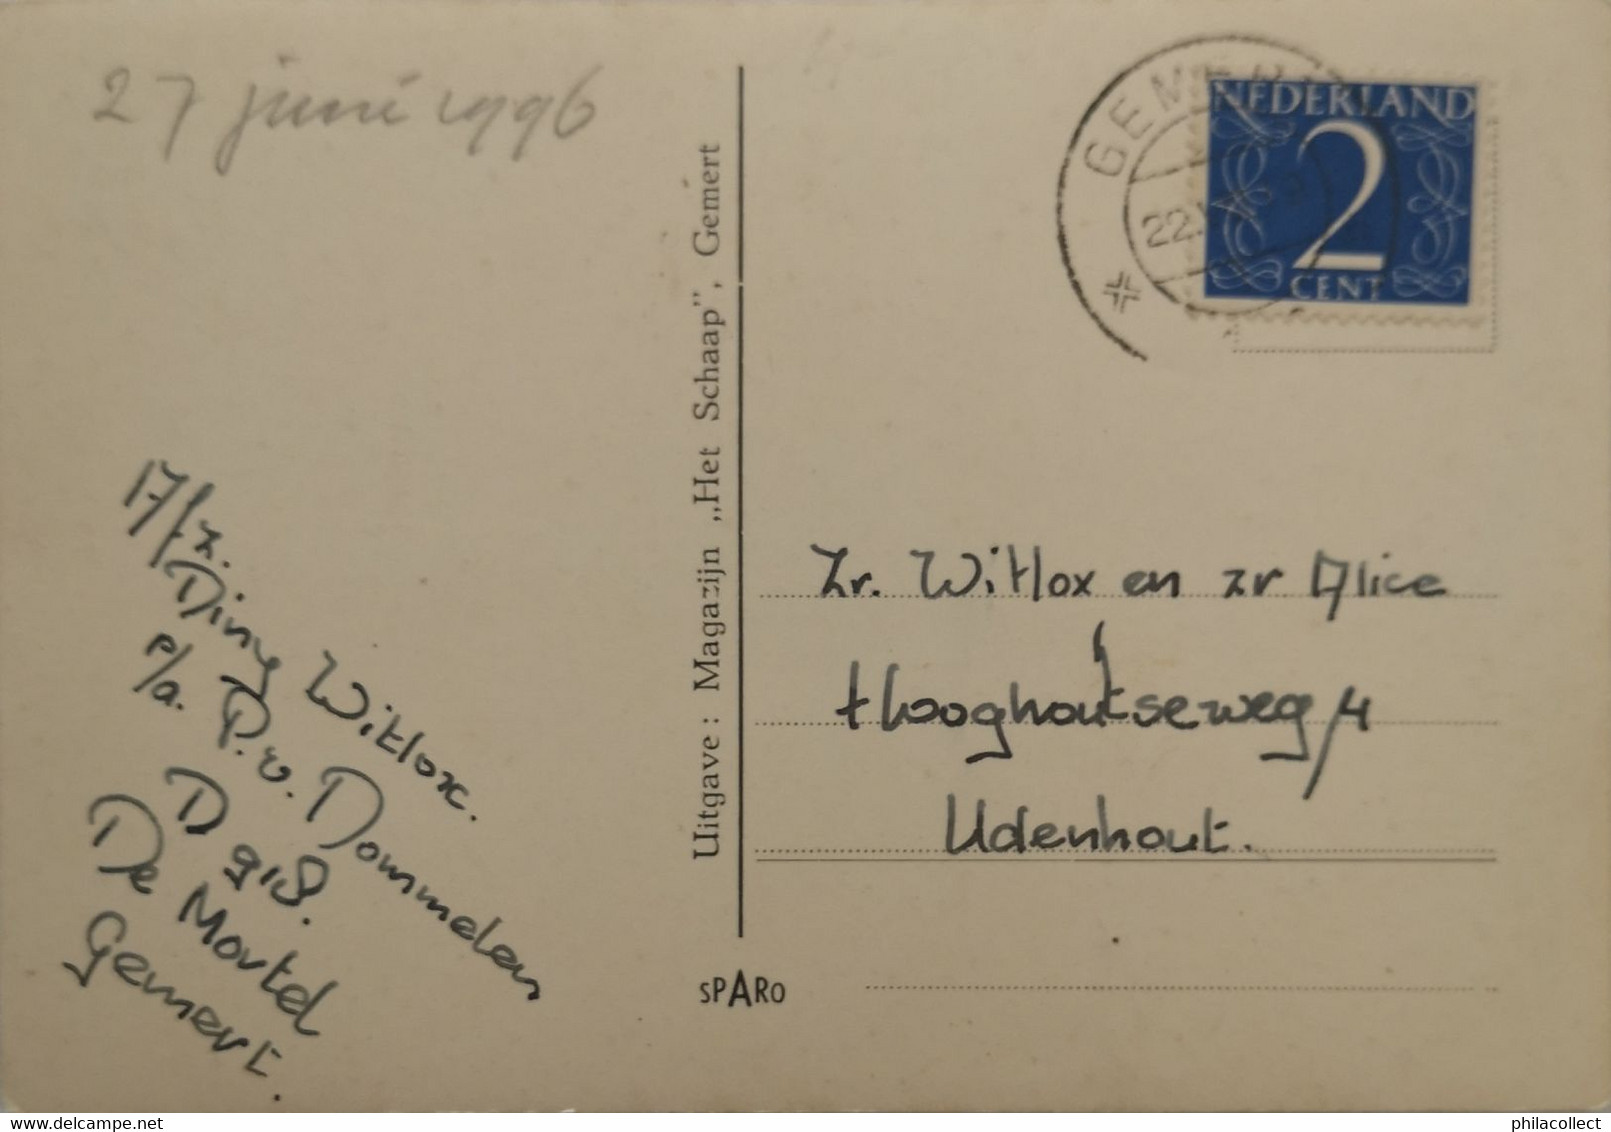 27 juni 1996
Afz.
Diny Witlox.
p/a. P. v. Dommelen
D 918.
De Mortel
Gemert.
Uitgave : Magazijn „Het Schaap”, Gemert
SPARO
GEMERT
22.
NEDERLAND
2
CENT
Zr. Witlox en zr Alice
Hooghoutseweg 4
Udenhout.
philacollect